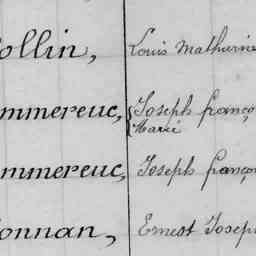 ollin, Louis Mathurin
mmereuc, Joseph franço
Marie
mmereuc, Joseph françoi
onnan, Ernest Joseph